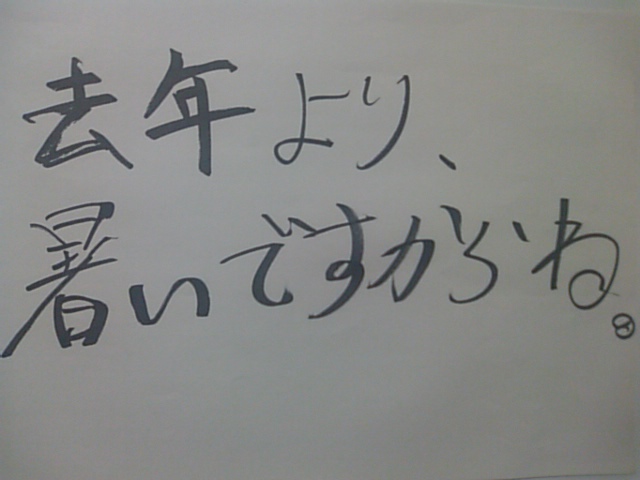 去年より、
暑いですからね。